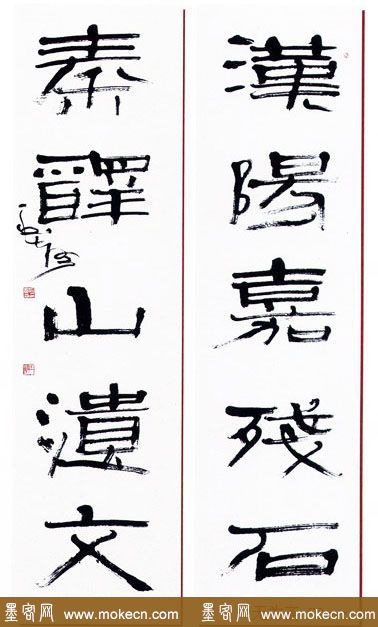 漢陽嘉殘石
秦嶧山遺文
墨客网 www.mokecn.com 墨客网 www.mokecn.com